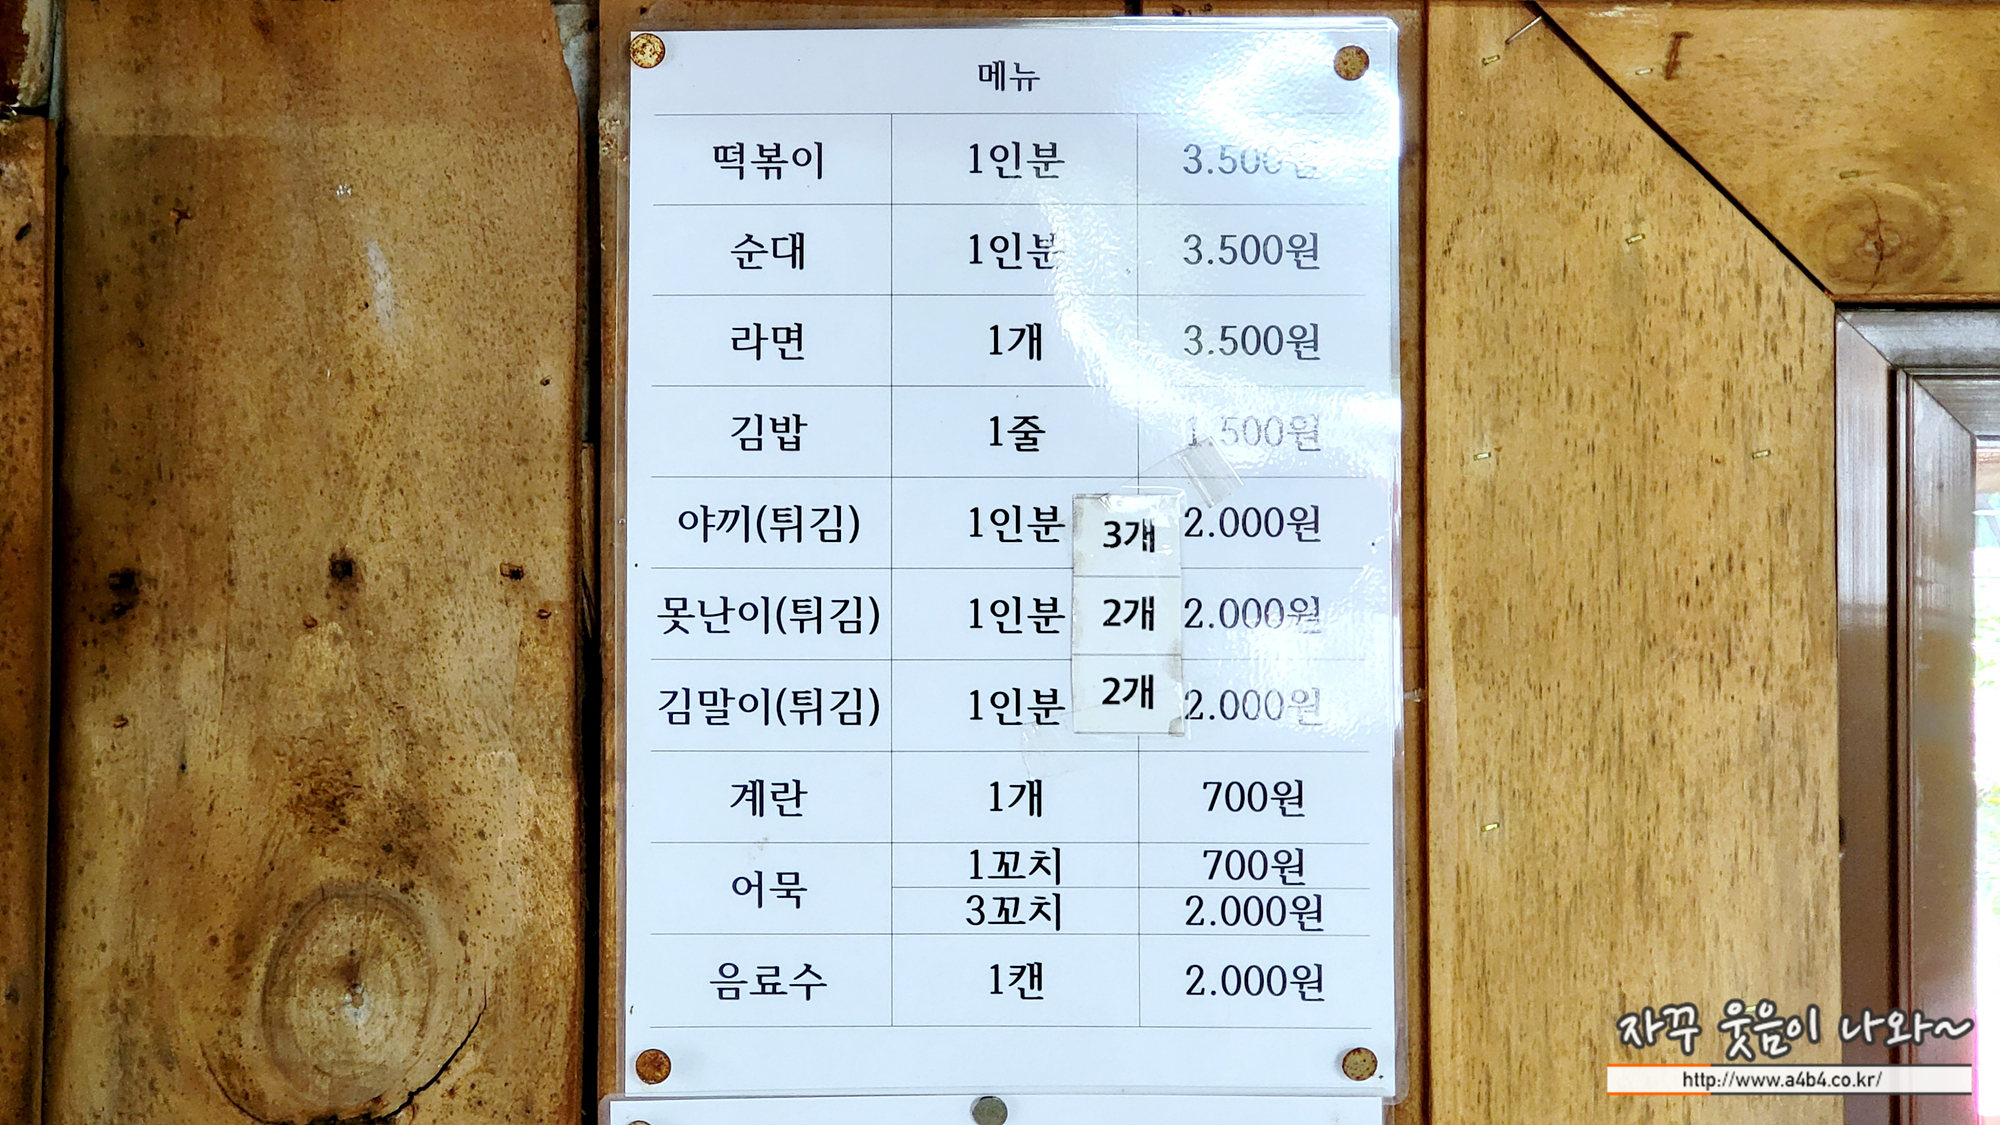 메뉴
떡볶이 1인분 3.500원
순대 1인분 3.500원
라면 1개 3.500원
김밥 1줄 1.500원
야끼(튀김) 1인분 3개 2.000원
못난이(튀김) 1인분 2개 2.000원
김말이(튀김) 1인분 2개 2.000원
계란 1개 700원
어묵 1꼬치 700원
3꼬치 2.000원
음료수 1캔 2.000원
자꾸 웃음이 나와~
http://www.a4b4.co.kr/